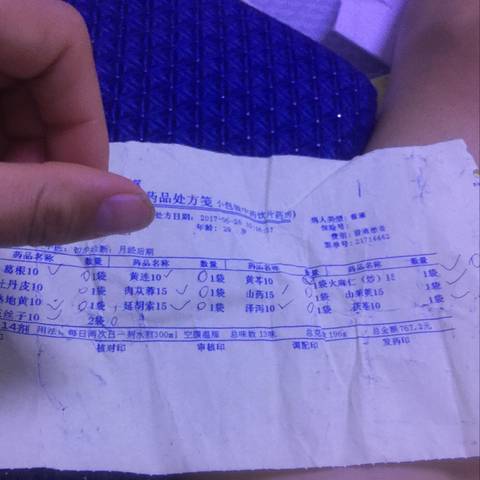 药品处方笺 小包装中药饮片药房
处方日期: 2017-06-26
病人类型: 
年龄: 28 岁
保险号:
费别: 普通患者
票单号: 21716662
初步诊断: 月经后期
药品名称 数量 药品名称 数量 药品名称 数量 药品名称 数量
葛根10 1袋 黄连10 1袋 黄芩10 1袋 火麻仁(炒)15 1袋
牡丹皮10 1袋 肉苁蓉15 1袋 山药15 1袋 山茱萸15 1袋
熟地黄10 1袋 延胡索15 1袋 泽泻10 1袋 茯苓10 1袋
菟丝子10 2袋
14剂 用法: 每日两次 300ml 空腹温服 总味数 13味 总克 196g 总金额 767.2元
核对印 审核印 调配印 发药印